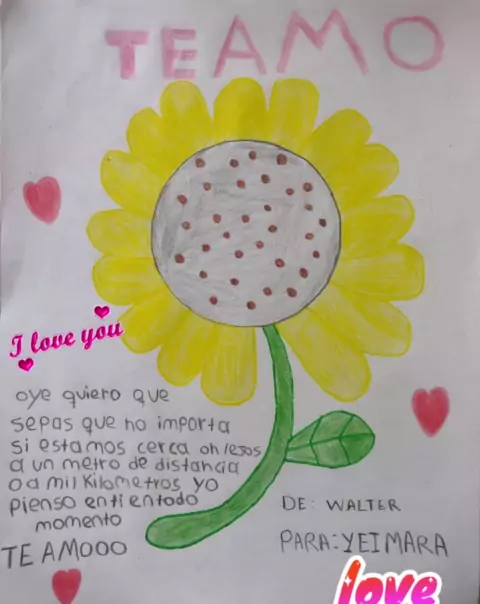 TEAMO
I love you
oye quiero que
sepas que no importa
si estamos cerca oh lejos
a un metro de distancia
o a mil Kilometros yo
pienso enti entodo
momento
TE AMOOO
DE: WALTER
PARA: YEIMARA
love